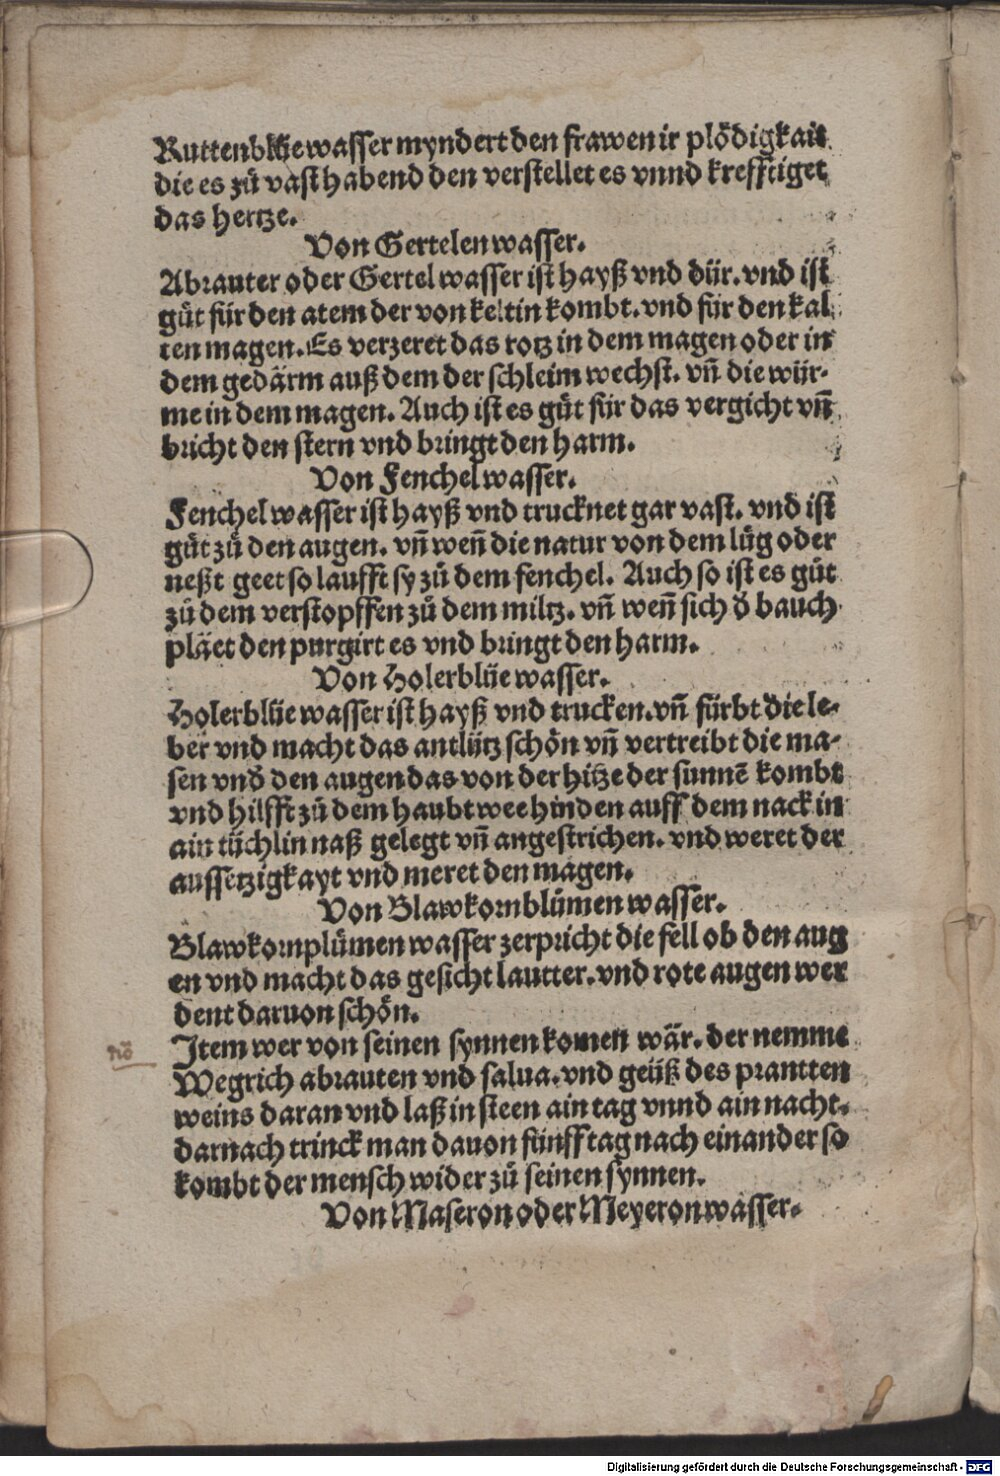 Ruttenblüewasser myndert den frawen ir plödigkait
die es zů vast habend den verstellet es vnnd krefftiget
das hertze.
Von Gertelen wasser.
Abrauter oder Gertel wasser ist hayß vnd dür. vnd ist
gůt für den atem der von keltin kombt. vnd für den kal
ten magen. Es verzeret das rotz in dem magen oder in
dem gedärm auß dem der schleim wechst. vn̄ die wür-
me in dem magen. Auch ist es gůt für das vergicht vn̄
bricht den stern vnd bringt den harm.
Von Fenchel wasser.
Fenchel wasser ist hayß vnd trucknet gar vast. vnd ist
gůt zů den augen. vn̄ wen̄ die natur von dem lůg oder
neßt geet so laufft sy zů dem fenchel. Auch so ist es gůt
zů dem verstopffen zů dem miltz. vn̄ wen̄ sich d̕ bauch
pläet den purgirt es vnd bringt den harm.
Von Holerblüe wasser.
Holerblüe wasser ist hayß vnd trucken. vn̄ fürbt die le-
ber vnd macht das antlütz schön vn̄ vertreibt die ma-
sen vnd̕ den augen das von der hitze der sunnē kombt
vnd hilfft zů dem haubt wee hinden auff dem nack in
ain tüchlin naß gelegt vn̄ angestrichen. vnd weret der
aussetzigkayt vnd meret den magen.
Von Blawkornblůmen wasser.
Blawkornplůmen wasser zerpricht die fell ob den aug
en vnd macht das gesicht lautter. vnd rote augen wer
dent daruon schön.
Item wer von seinen synnen komen wär. der nemme
Wegrich abrauten vnd salua. vnd geüß des prantten
weins daran vnd laß in steen ain tag vnnd ain nacht.
darnach trinck man dauon fünff tag nach einander so
kombt der mensch wider zů seinen synnen.
Von Maseron oder Meyeron wasser.
Digitalisierung gefördert durch die Deutsche Forschungsgemeinschaft - DFG